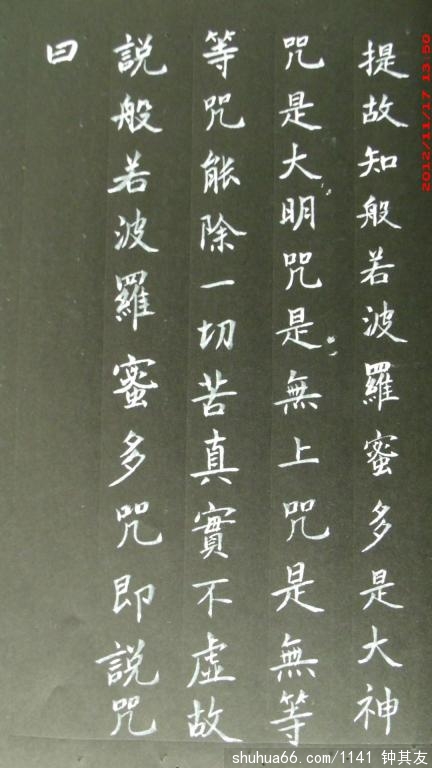 提故知般若波羅蜜多是大神
咒是大明咒是無上咒是無等
等咒能除一切苦真實不虛故
說般若波羅蜜多咒即說咒
曰
2012/11/17 13:50
shuhua66.com/1141 钟其友